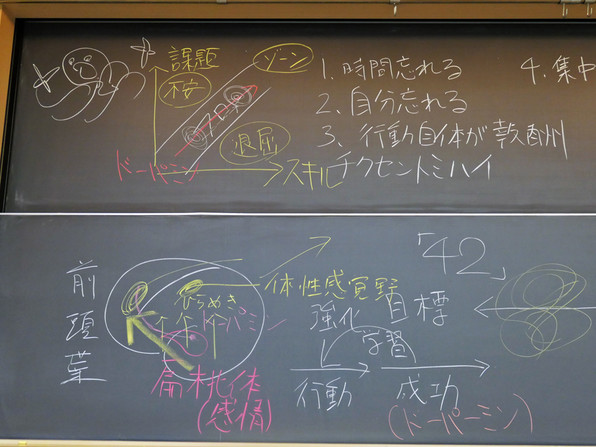 課題
ゾーン
桉
フロー
退屈
ドーパミン
スキル
1. 時間忘れる
2. 自分忘れる
3. 行動自体が報酬
チクセントミハイ
4. 集中
前頭葉
ひらめき
ドーパミン
体性感覚野
扁桃体
(感情)
強化
学習
行動
成功
(ドーパーミン)
目標
「42」